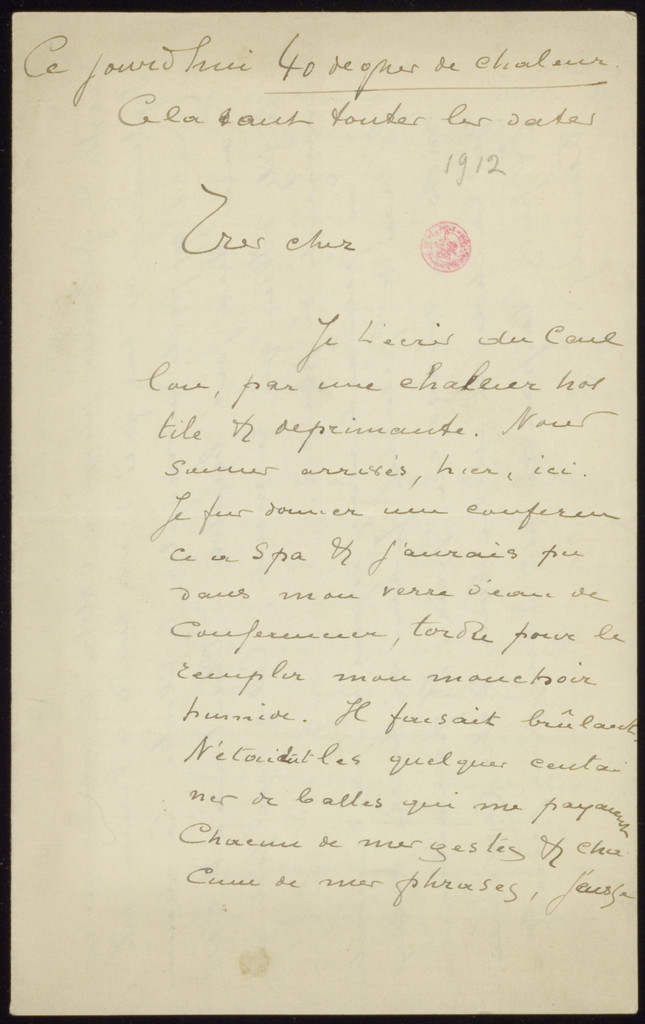 Ce jourd'hui 40 degres de chaleur.
Cela vaut toutes les dates
1912
Tres cher
Je t'ecris du Cail
lou, par une chaleur hos
tile & deprimante. Nous
sommes arrivés, hier, ici.
Je fus donner une conferen
ce a Spa & j'aurais pu
dans mon verre d'eau de
Conferencier, tordre pour le
remplir mon mouchoir
humide. Il faisait brûlant.
N'étaient les quelques centai
nes de balles qui me payaient
Chacun de mes gestes & cha
cune de mes phrases, j'eusse